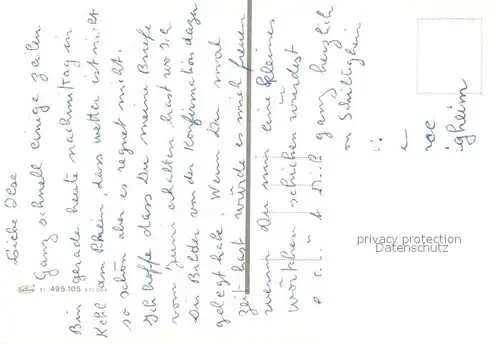 Liebe Ilse
Ganz schnell einige Zeilen
Bin gerade heute nachmittag in
Kehl am Rhein, dass wetter ist nicht
so schön aber es regnet nicht.
Ich hoffe dass Du meine Briefe
vom Juni erhalten hast wo ich
Dir Bilder von der Konfirmation dazu
gelegt habe. Wenn Du mal
Zeit hast würde es mich freuen
wenn Du mir eine kleines
wörtchen schicken würdest
Dich ganz herzlich
Schilligheim
igheim
495.105
privacy protection
Datenschutz